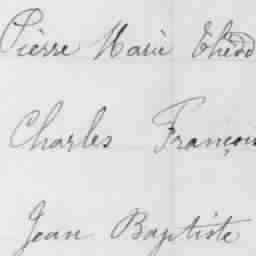 Pierre Marie
Charles François
Jean Baptiste